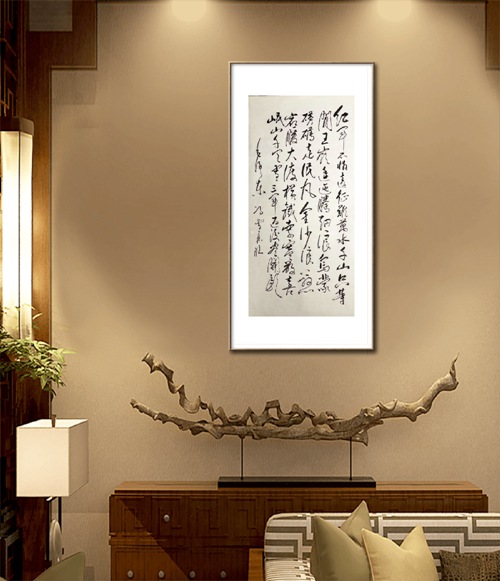 红军不怕远征难万水千山只等
闲五岭逶迤腾细浪乌蒙
磅礴走泥丸金沙浪拍云
崖暖大渡桥横铁索寒更喜
岷山千里雪三军过后尽开颜
毛泽东